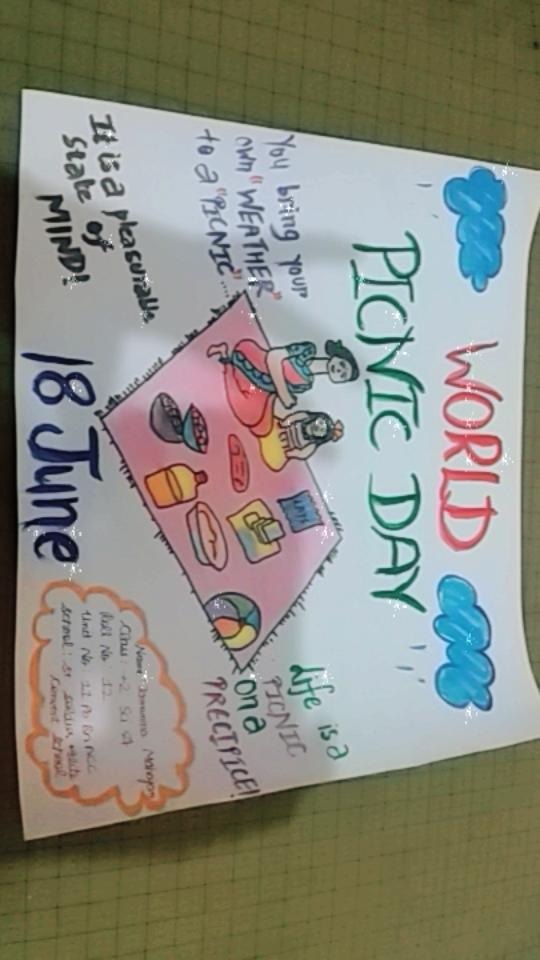 WORLD
PICNIC DAY
You bring your
own "WEATHER"
to a "PICNIC"....
Life is a
PICNIC
on a
PRECIPICE!
It is a pleasurable
state of
MIND!
18 June
Name:
Class: +2 Sci
Roll No 12
Unit No
School: St Soldier
Convent School